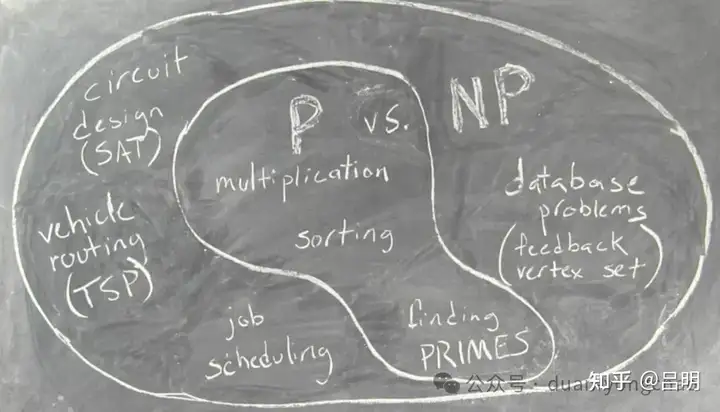 P vs. NP
circuit
design
(SAT)
vehicle
routing
(TSP)
multiplication
sorting
job
scheduling
finding
PRIMES
database
problems
(feedback
vertex set)
公众号
知乎 @吕明